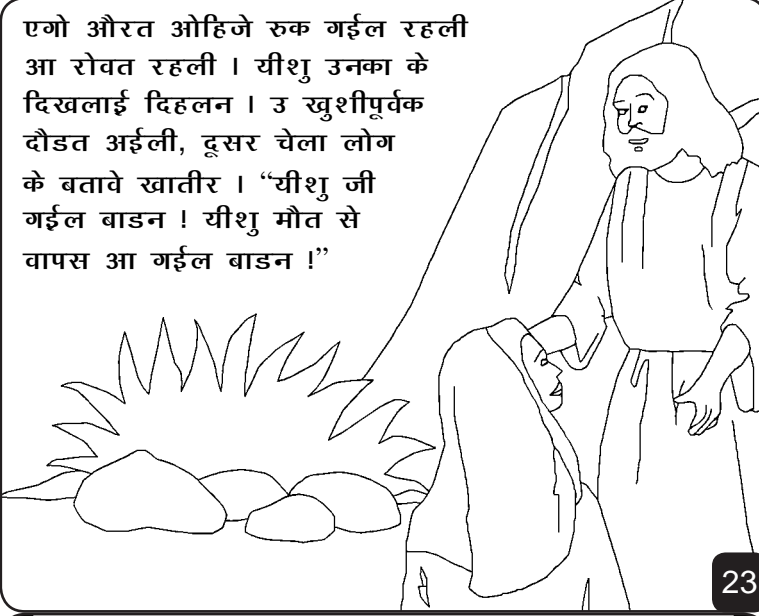 एगो औरत ओहिजे रुक गईल रहली
आ रोवत रहली । यीशु उनका के
दिखलाई दिहलन । उ खुशीपूर्वक
दौडत अईली, दूसर चेला लोग
के बतावे खातीर । “यीशु जी
गईल बाडन ! यीशु मौत से
वापस आ गईल बाडन !”
23